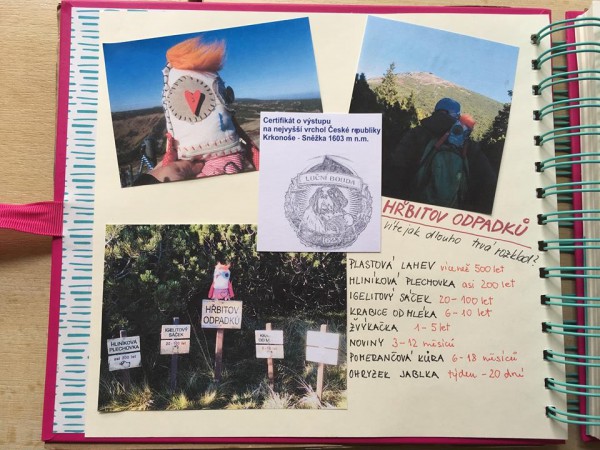 Certifikát o výstupu
na nejvyšší vrchol České republiky
Krkonoše - Sněžka 1603 m n.m.
LUČNÍ BOUDA
HŘBITOV ODPADKŮ
víte jak dlouho trvá rozklad?
PLASTOVÁ LAHEV více než 500 let
HLINÍKOVÁ PLECHOVKA asi 200 let
IGELITOVÝ SÁČEK 20-100 let
KRABICE OD MLÉKA 6-10 let
ŽVÝKAČKA 1-5 let
NOVINY 3-12 měsíců
POMERANČOVÁ KŮRA 6-18 měsíců
OHRYZEK JABLKA týden - 20 dní
HŘBITOV
ODPADKŮ
HLINÍKOVÁ
PLECHOVKA
IGELITOVÝ
SÁČEK